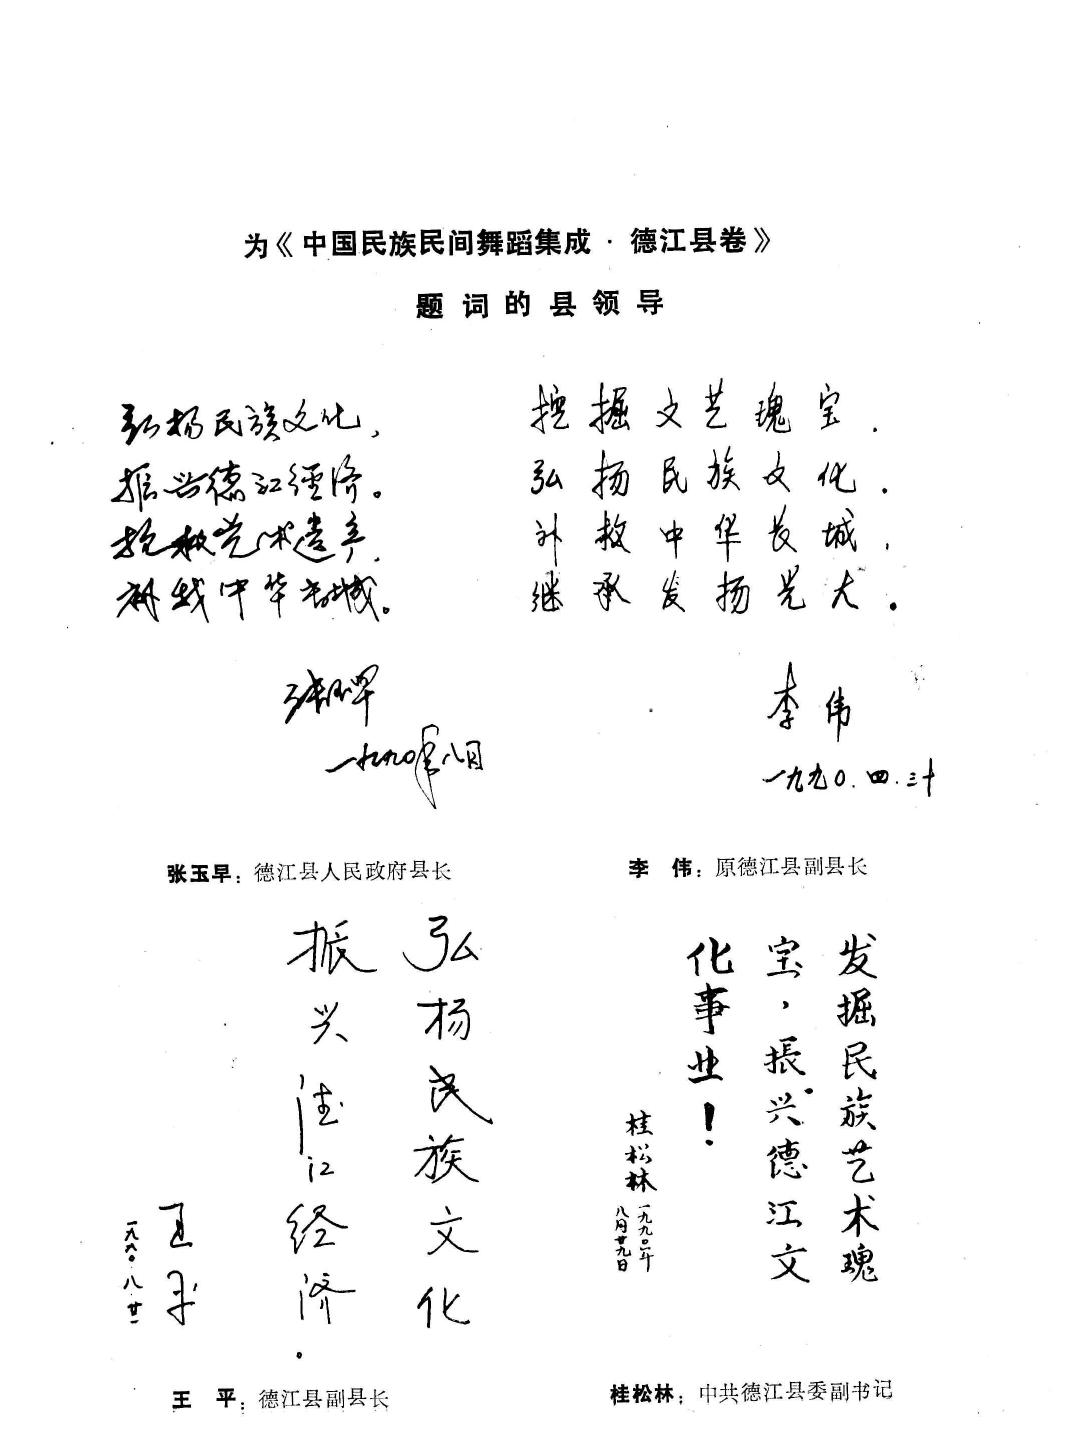 为《中国民族民间舞蹈集成·德江县卷》
题词的县领导
弘扬民族文化，
振兴德江经济。
抢救艺术遗产，
中华长城。
张玉早
一九九〇年八月
挖掘文艺瑰宝．
弘扬民族文化．
补救中华长城，
继承发扬光大。
李伟
一九九〇．四．三十
张玉早：德江县人民政府县长
李　伟：原德江县副县长
弘扬民族文化
振兴德江经济．
王平
一九九〇．八．廿一
发掘民族艺术瑰
宝，振兴德江文
化事业！
桂松林
一九九〇年
八月廿九日
王　平：德江县副县长
桂松林：中共德江县委副书记